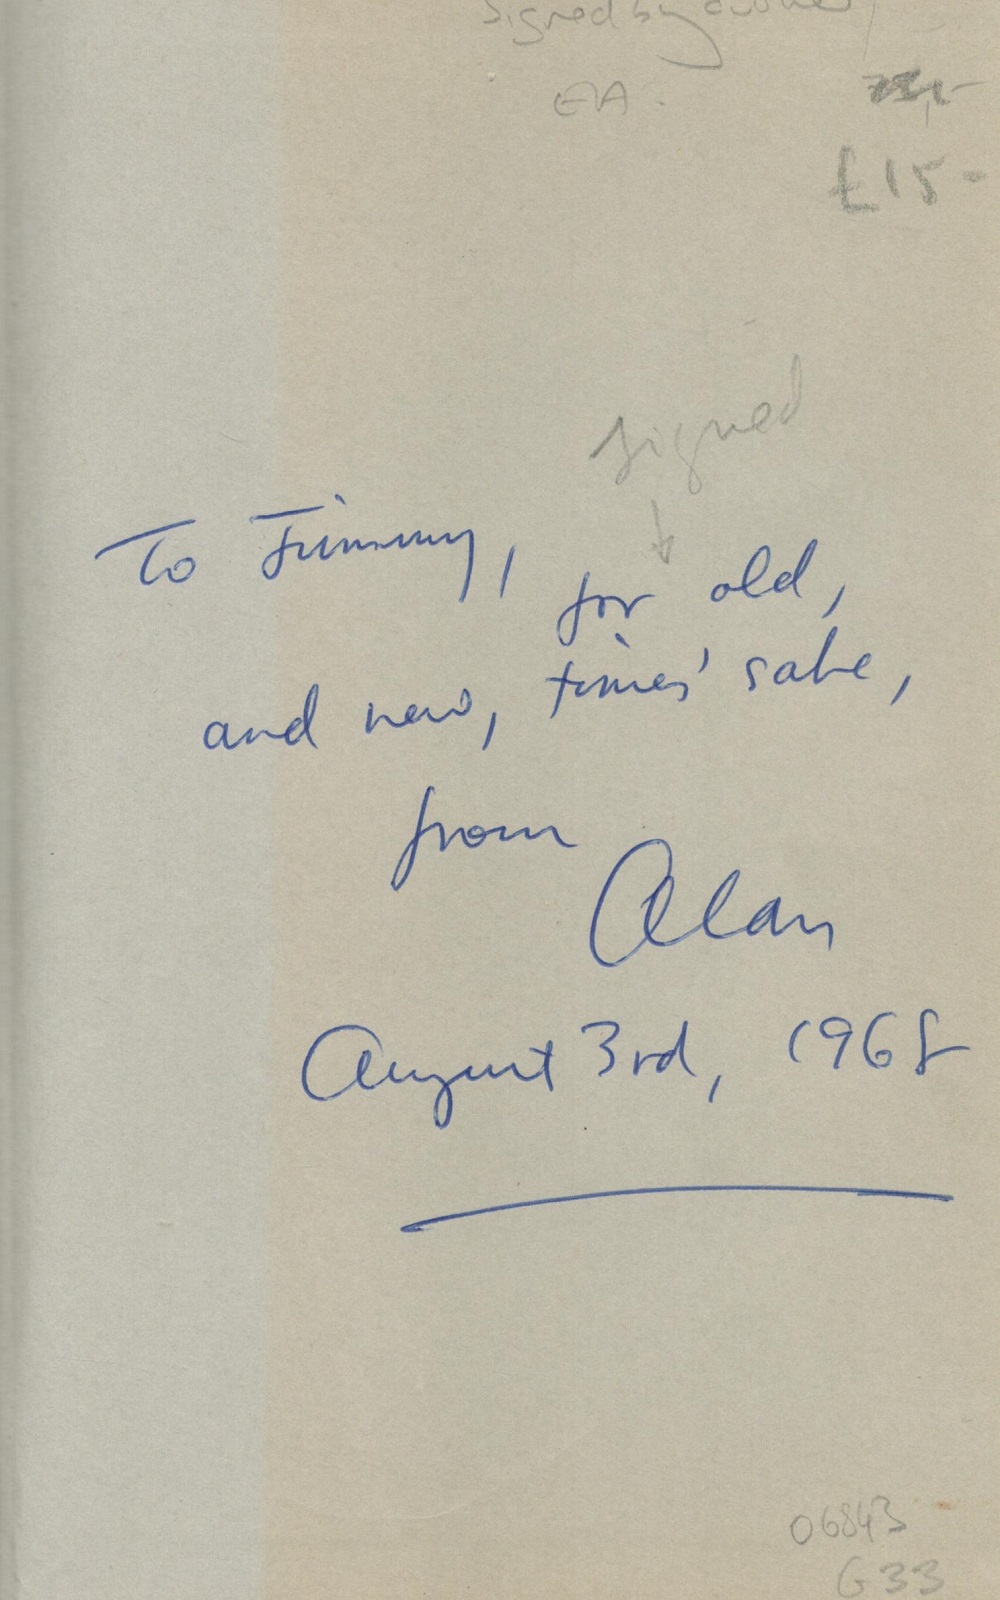 Signed by author
EA.
£15-
signed
To Jimmy,
for old,
and new, times' sake,
from
Alan
August 3rd, 1968
06843
G33